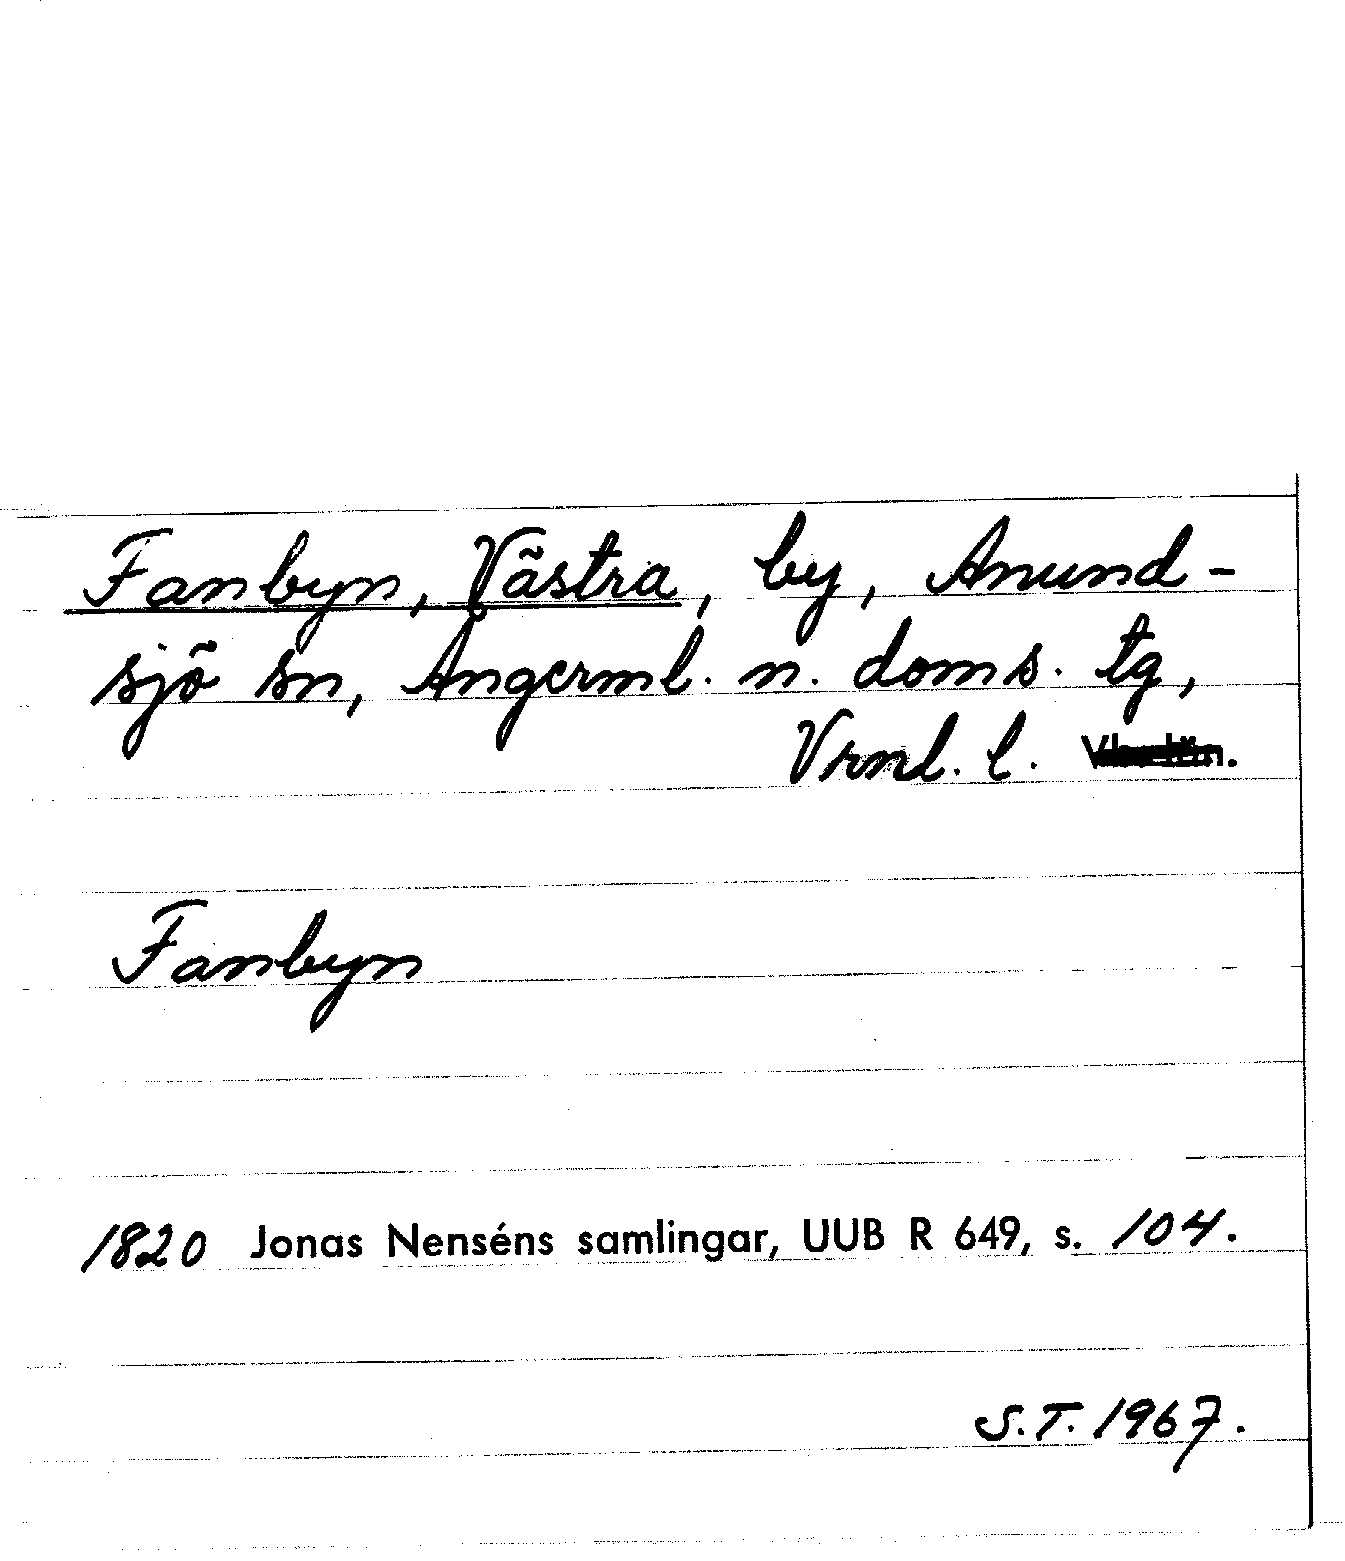 Fanbyn, Västra, by, Anund-
sjö sn, Ångerml. n. doms. tg,
Vrnl. l.
Fanbyn
1820 Jonas Nenséns samlingar, UUB R 649, s. 104.
S.T. 1967.